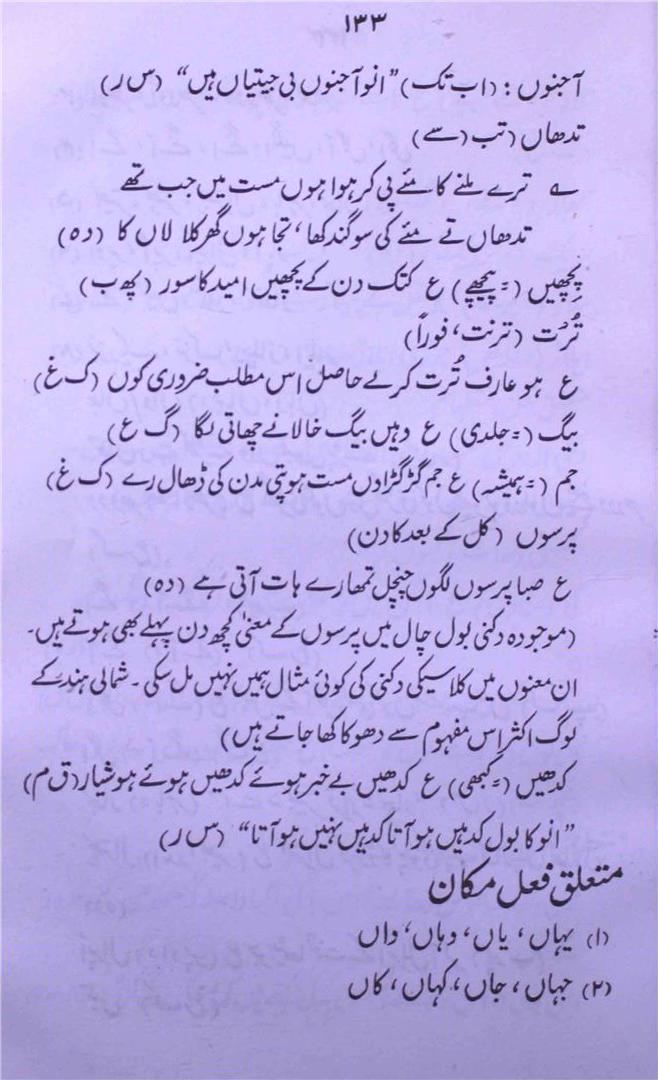 ۱۳۳
آجنوں : (اب تک) "انو آجنوں بی جیتیاں ہیں" (س ر)
تدھاں (تب (سے)
ے ترے ملنے کا مئے پی کر ہوا ہوں مست میں جب تھے
تدھاں تے مئے کی سوگند کھا، تجا ہوں گھر کلالاں کا (دہ)
پچھیں (= پیچھے) ع کتک دن کے پچھیں امید کا سور (پھ ب)
تُرت (ترنت، فوراً)
ع ہو عارف تُرت کر لے حاصل اس مطلب ضروری کوں (ک غ)
بیگ (= جلدی) ع دہیں بیگ خالا نے چھاتی لگا (گ ع)
جم (= ہمیشہ) ع جم گڑگڑا دں مست ہو پتی مدن کی ڈھال رے (ک غ)
پرسوں (کل کے بعد کا دن)
ع صبا پرسوں لگوں چنچل تمھارے ہات آتی ہے (دہ)
(موجودہ دکنی بول چال میں پرسوں کے معنیٰ کچھ دن پہلے بھی ہوتے ہیں۔
ان معنوں میں کلاسیکی دکنی کی کوئی مثال ہمیں نہیں مل سکی۔ شمالی ہند کے
لوگ اکثر اس مفہوم سے دھوکا کھا جاتے ہیں)
کدھیں (= کبھی) ع کدھیں بے خبر ہوئے کدھیں ہوئے ہوشیار (ق م)
"انو کا بول کدہیں ہو آتا کدہیں نہیں ہو آتا" (س ر)
متعلق فعل مکان
(۱) یہاں، یاں، وہاں، واں
(۲) جہاں، جاں، کہاں، کاں